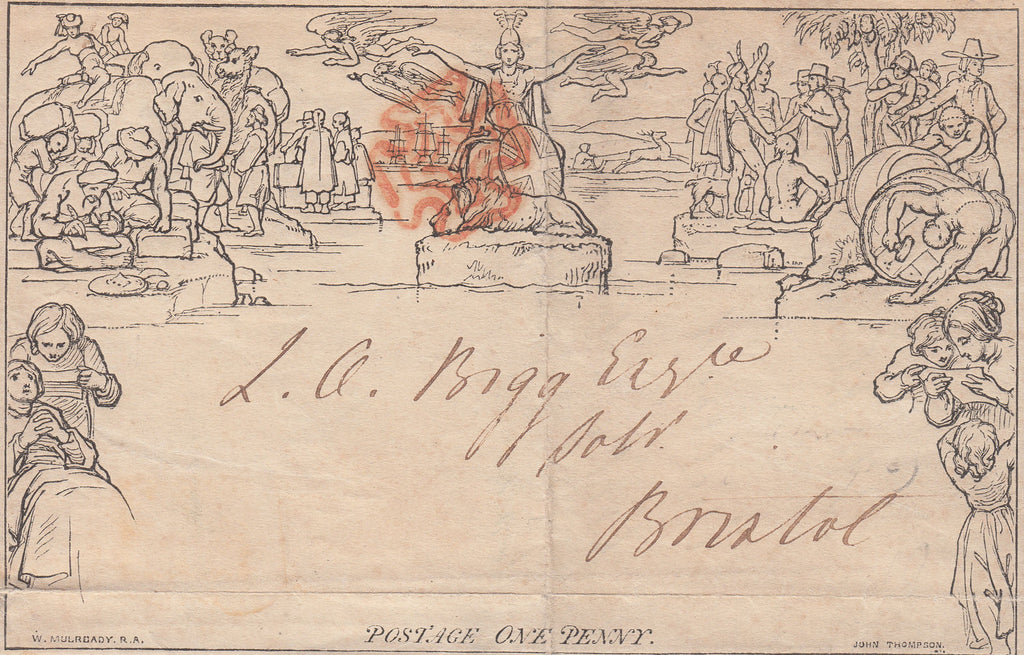 L. A. Bigg Esqre
Solr.
Bristol
W. MULREADY. R.A.
POSTAGE ONE PENNY.
JOHN THOMPSON.